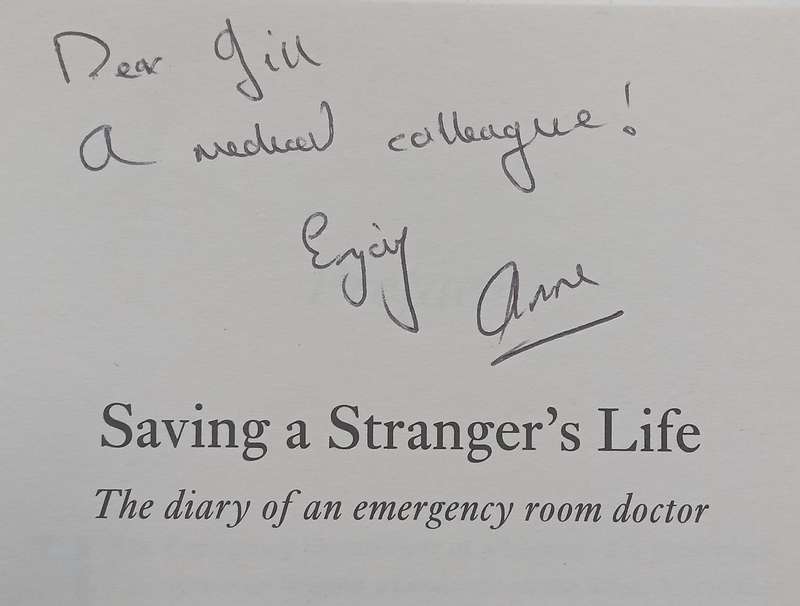 Dear Gill
A medical colleague!
Enjoy
Anne
Saving a Stranger's Life
The diary of an emergency room doctor